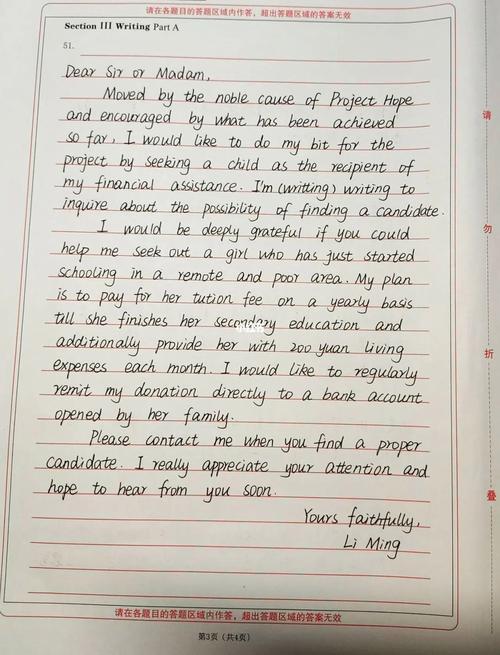 请在各题目的答题区域内作答，超出答题区域的答案无效
Section III Writing Part A
51.
Dear Sir or Madam,
Moved by the noble cause of Project Hope
and encouraged by what has been achieved
so far, I would like to do my bit for the
project by seeking a child as the recipient of
my financial assistance. I'm (writting) writing to
inquire about the possibility of finding a candidate.
I would be deeply grateful if you could
help me seek out a girl who has just started
schooling in a remote and poor area. My plan
is to pay for her tution fee on a yearly basis
till she finishes her secondary education and
additionally provide her with 200 yuan living
expenses each month. I would like to regularly
remit my donation directly to a bank account
opened by her family.
Please contact me when you find a proper
candidate. I really appreciate your attention and
hope to hear from you soon.
Yours faithfully,
Li Ming
请在各题目的答题区域内作答，超出答题区域的答案无效
第3页（共4页）
请
勿
折
叠